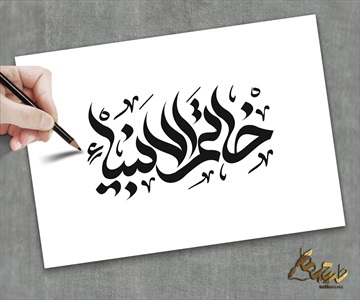 خاتم الانبیاء